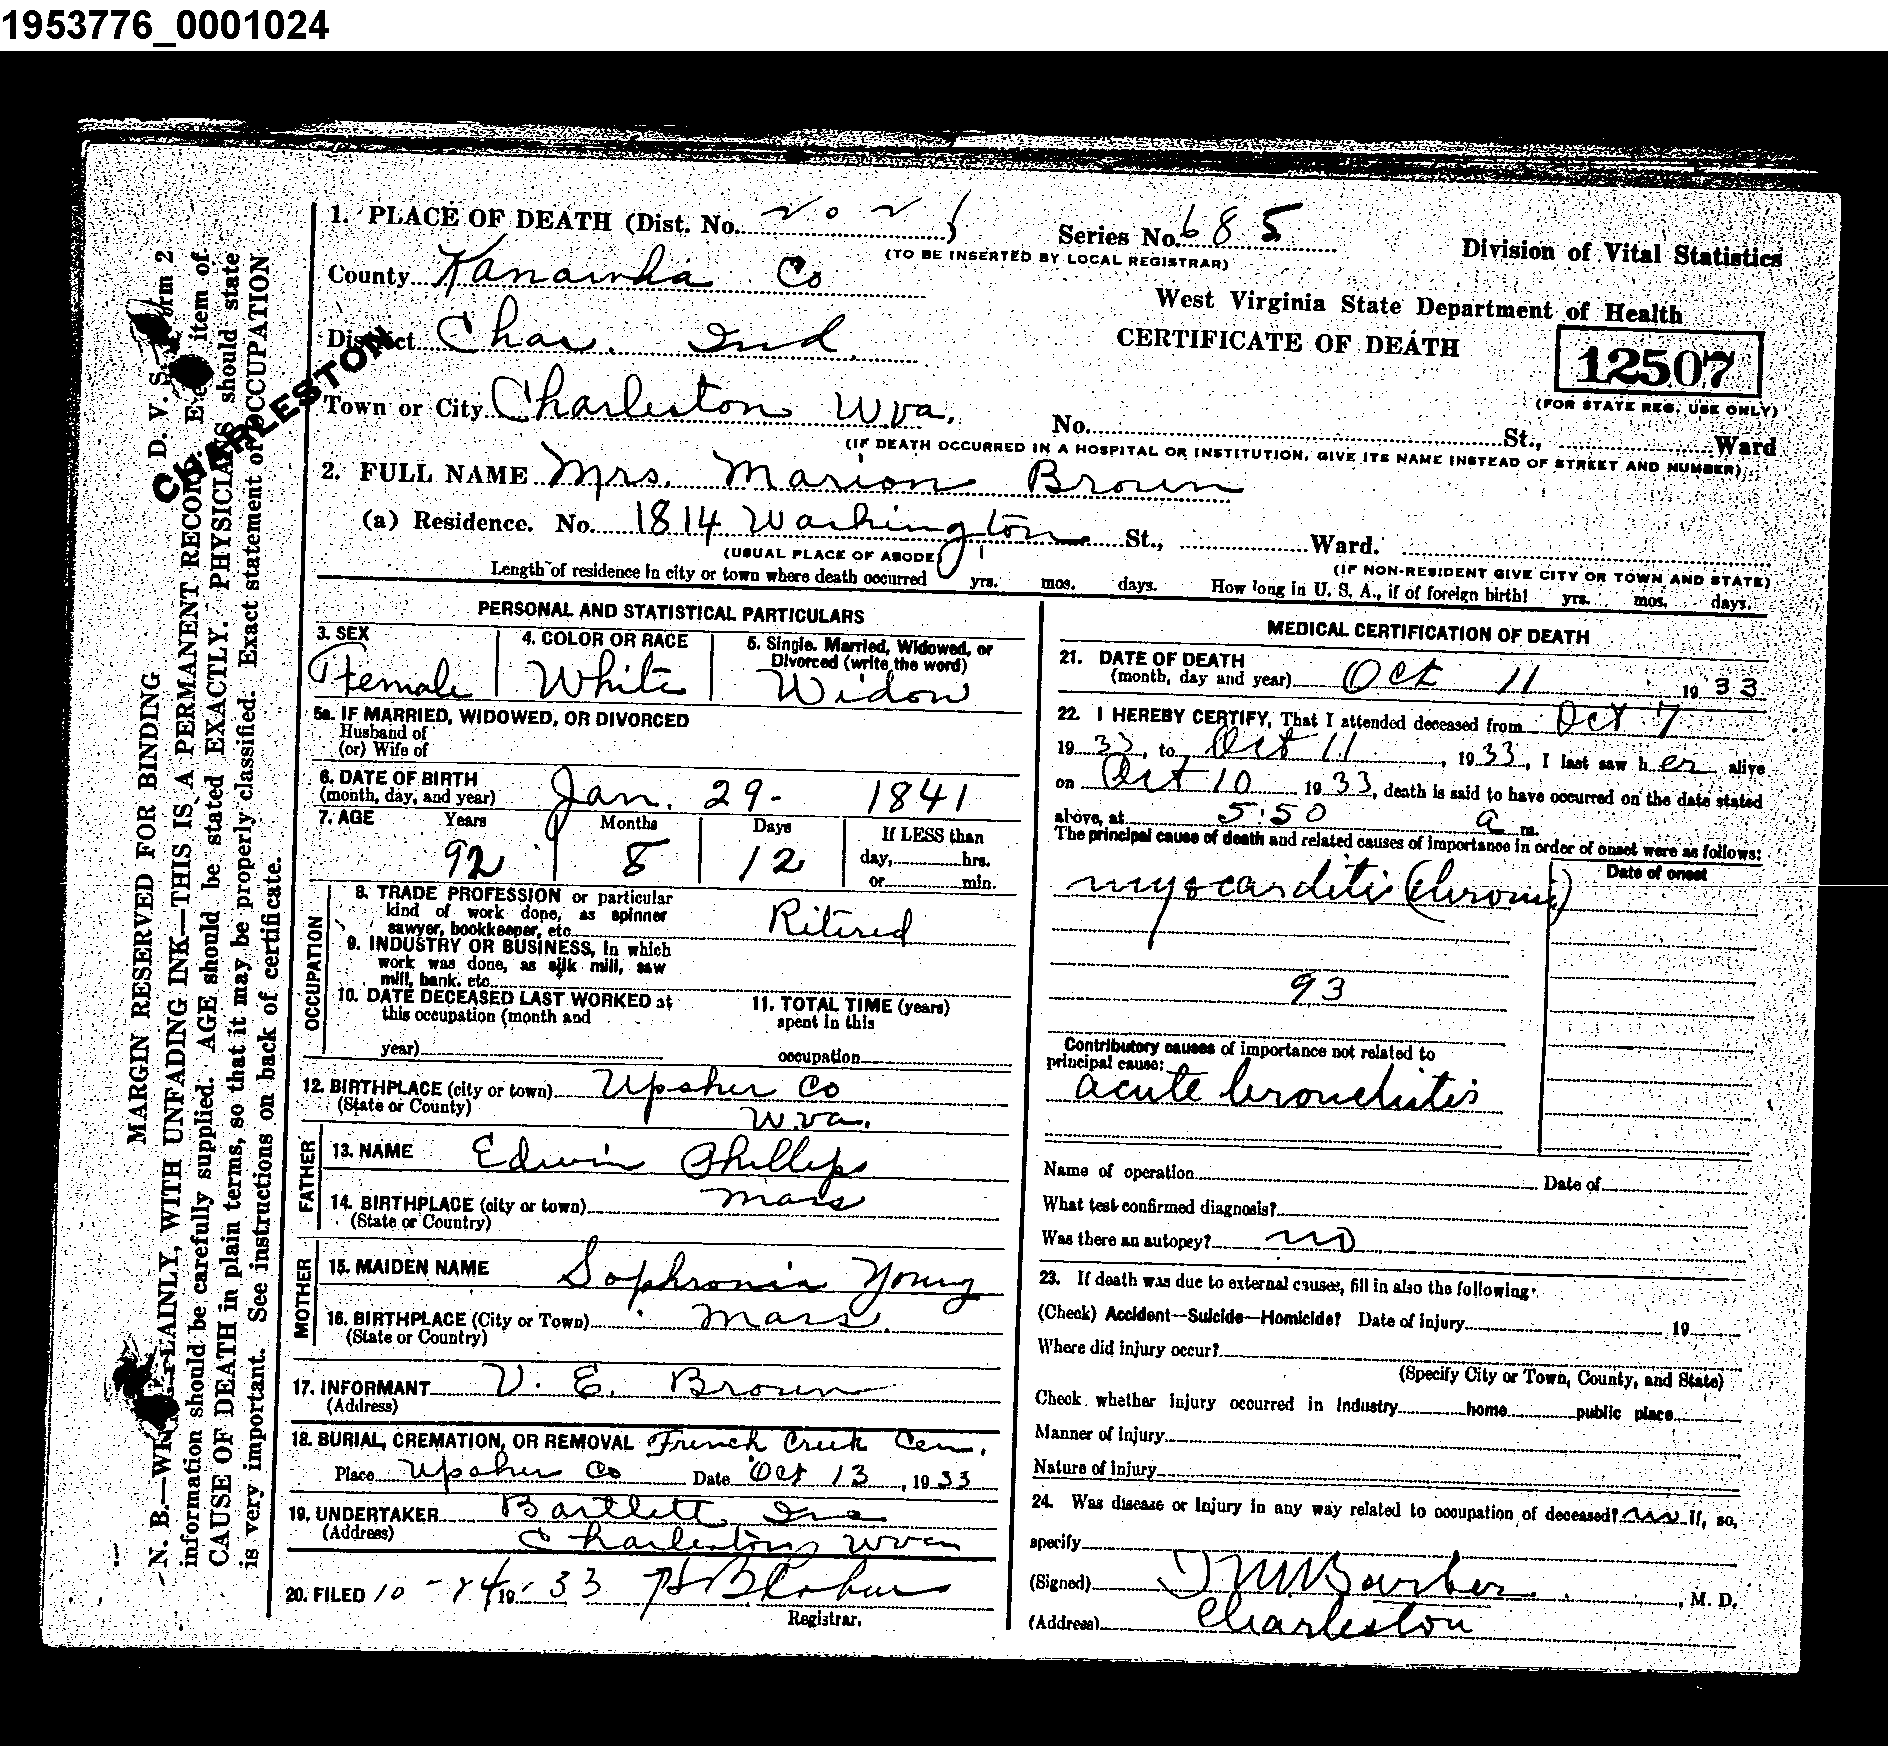 1953776_0001024
1. PLACE OF DEATH (Dist. No. Series No. 685
(TO BE INSERTED BY LOCAL REGISTRAR)
Division of Vital Statistics
County Kanawha Co
West Virginia State Department of Health
District Char. Ind.
CERTIFICATE OF DEATH
12507
(FOR STATE REG. USE ONLY)
CHARLESTON
Town or City Charleston Wva. No. St., Ward
(IF DEATH OCCURRED IN A HOSPITAL OR INSTITUTION, GIVE ITS NAME INSTEAD OF STREET AND NUMBER)
2. FULL NAME Mrs. Marion Brown
(a) Residence. No. 1814 Washington St., Ward.
(USUAL PLACE OF ABODE) (IF NON-RESIDENT GIVE CITY OR TOWN AND STATE)
Length of residence in city or town where death occurred yrs. mos. days. How long in U. S. A., if of foreign birth? yrs. mos. days.
PERSONAL AND STATISTICAL PARTICULARS
3. SEX 4. COLOR OR RACE 5. Single, Married, Widowed, or
Divorced (write the word)
Female White Widow
5a. IF MARRIED, WIDOWED, OR DIVORCED
Husband of
(or) Wife of
6. DATE OF BIRTH
(month, day, and year) Jan. 29- 1841
7. AGE Years Months Days If LESS than
92 8 12 day, hrs.
or min.
OCCUPATION
8. TRADE PROFESSION or particular
kind of work done, as spinner
sawyer, bookkeeper, etc. Ritired
9. INDUSTRY OR BUSINESS, in which
work was done, as silk mill, saw
mill, bank. etc.
10. DATE DECEASED LAST WORKED at
this occupation (month and
year)
11. TOTAL TIME (years)
spent in this
occupation
12. BIRTHPLACE (city or town) Upsher Co
(State or County) W.va.
FATHER
13. NAME Edwin Phillips
14. BIRTHPLACE (city or town) Mass
(State or Country)
MOTHER
15. MAIDEN NAME Sophronia Young
16. BIRTHPLACE (City or Town) Mass.
(State or Country)
17. INFORMANT V. E. Brown
(Address)
18. BURIAL, CREMATION, OR REMOVAL French Creek Cem.
Place Upsher Co Date Oct 13, 1933
19. UNDERTAKER Bartlett
(Address) Charleston Wva
20. FILED 10 - 19 33
Registrar.
MEDICAL CERTIFICATION OF DEATH
21. DATE OF DEATH
(month, day and year) Oct 11 1933
22. I HEREBY CERTIFY, That I attended deceased from Oct 7
1933, to Oct 11, 1933, I last saw her alive
on Oct 10 1933, death is said to have occurred on the date stated
above, at 5:50 a m.
The principal cause of death and related causes of importance in order of onset were as follows:
Date of onset
myocarditis (chronic)
93
Contributory causes of importance not related to
principal cause:
acute bronchitis
Name of operation Date of
What test confirmed diagnosis?
Was there an autopsy? no
23. If death was due to external causes, fill in also the following:
(Check) Accident—Suicide—Homicide? Date of injury 19
Where did injury occur?
(Specify City or Town, County, and State)
Check whether injury occurred in Industry home public place
Manner of Injury
Nature of Injury
24. Was disease or injury in any way related to occupation of deceased? no If, so,
specify
(Signed) Barber, M. D.
(Address) Charleston
MARGIN RESERVED FOR BINDING
information should be carefully supplied. AGE should be stated EXACTLY. PHYSICIANS should state
CAUSE OF DEATH in plain terms, so that it may be properly classified. Exact statement of OCCUPATION
is very important. See instructions on back of certificate.